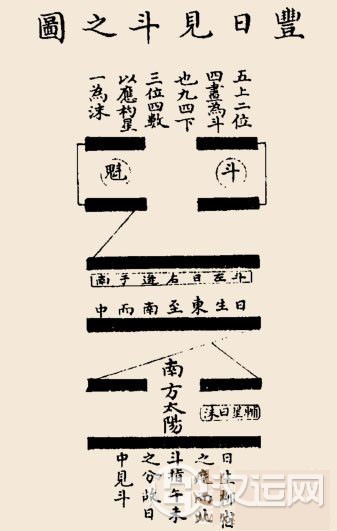 豐日見斗之圖
五上二位
四畫為斗
也九四下
三位四數
以應杓星
一為沫
斗
魁
斗左日右遊于
日生東至南而中
南方太陽
輔星曰沫
日
之應而北
斗指午未
之分故日
中見斗
汉运网